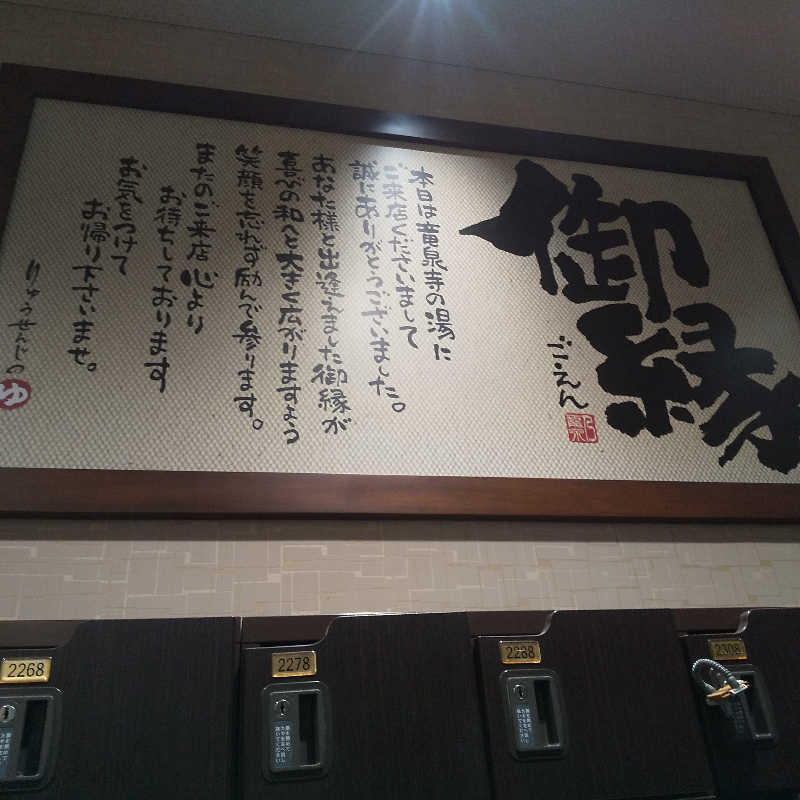 御縁
ご・えん
本日は竜泉寺の湯に
ご来店くださいまして
誠にありがとうございました。
あなた様と出逢えました御縁が
喜びの和へと大きく広がりますよう
笑顔を忘れず励んで参ります。
またのご来店 心より
お待ちしております
お気をつけて
お帰り下さいませ。
りゅうせんじの
ゆ
2268
2278
2288
2308